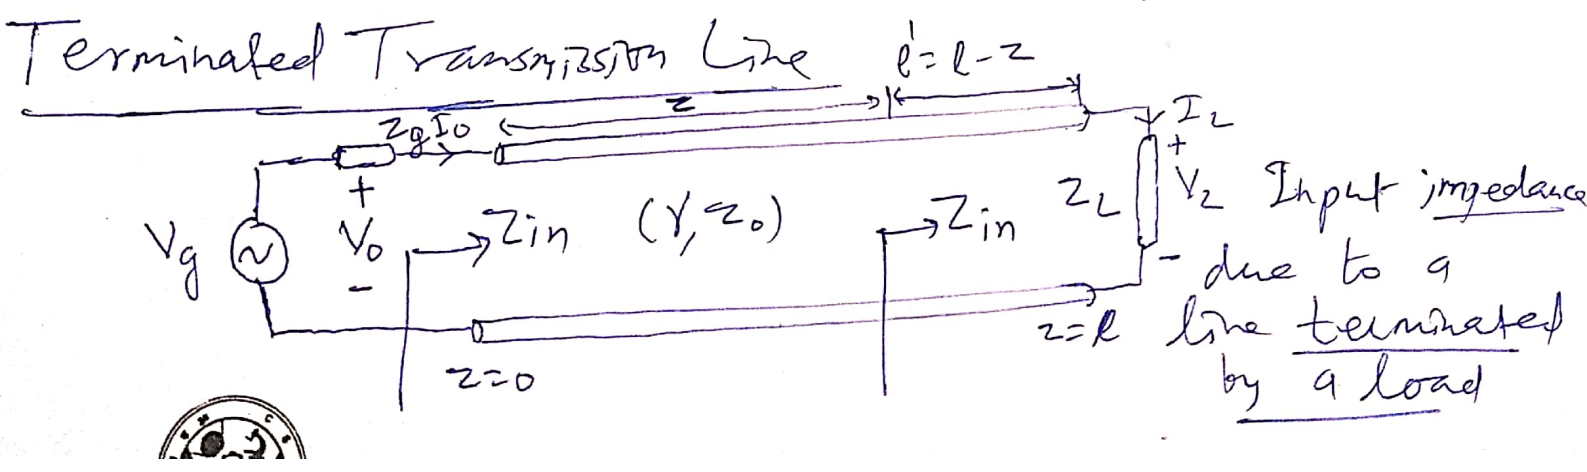 Terminated Transmission Line
l' = l - z
z
Zg I0
IL
+
+
Vg
V0
Zin
(γ, z0)
Zin
ZL
VL
Input impedance
-
-
due to a
z=l
line terminated
z=0
by a load